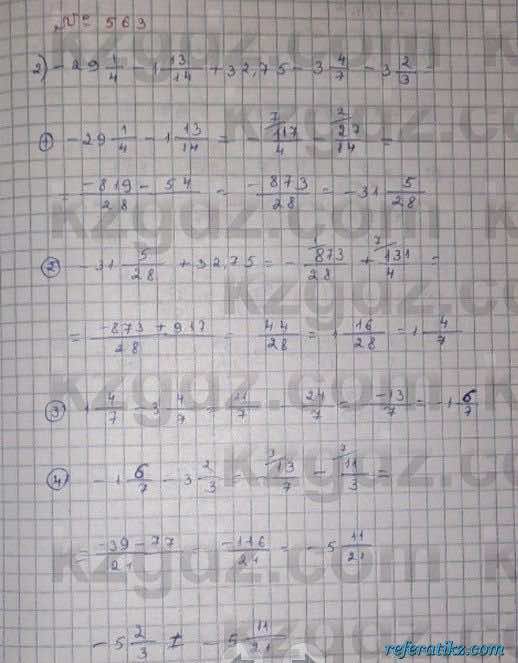 № 563
2) -29 1/4 - 1 13/14 + 32,75 - 3 4/7 - 3 2/3 =
① -29 1/4 - 1 13/14 = - 117/4 - 27/14 =
= -819 - 54/28 = -873/28 = -31 5/28
② -31 5/28 + 32,75 = - 873/28 + 131/4 =
= -873 + 917/28 = 44/28 = 1 16/28 = 1 4/7
③ 1 4/7 - 3 4/7 = 11/7 - 24/7 = -13/7 = -1 6/7
④ -1 6/7 - 3 2/3 = 13/7 - 11/3 =
= -39 - 77/21 = -116/21 = -5 11/21
-5 2/3 I -5 11/21
kzgdz.com
referatikz.com